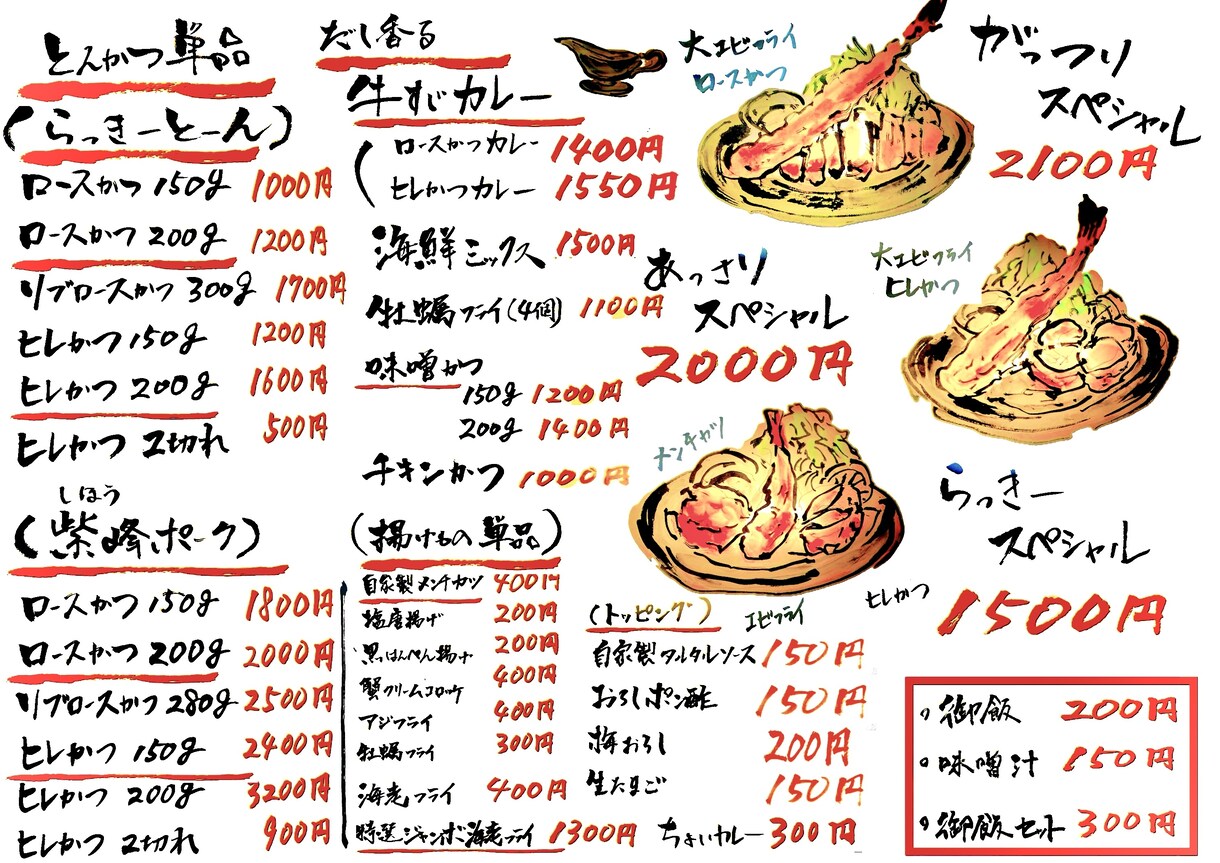 とんかつ単品
(らっきーとーん)
ロースかつ 150g 1000円
ロースかつ 200g 1200円
リブロースかつ 300g 1700円
ヒレかつ 150g 1200円
ヒレかつ 200g 1600円
ヒレかつ 2切れ 500円
しほう
(紫峰ポーク)
ロースかつ 150g 1800円
ロースかつ 200g 2000円
リブロースかつ 280g 2500円
ヒレかつ 150g 2400円
ヒレかつ 200g 3200円
ヒレかつ 2切れ 900円
だし香る
牛すじカレー
ロースかつカレー 1400円
ヒレかつカレー 1550円
海鮮ミックス 1500円
牡蠣フライ(4個) 1100円
味噌かつ
150g 1200円
200g 1400円
チキンかつ 1000円
(揚げもの単品)
自家製メンチカツ 400円
塩唐揚げ 200円
黒はんぺん揚げ 200円
蟹クリームコロッケ 400円
アジフライ 400円
牡蠣フライ 300円
海老フライ 400円
特選ジャンボ海老フライ 1300円
大エビフライ
ロースかつ
がっつり
スペシャル
2100円
あっさり
スペシャル
2000円
大エビフライ
ヒレかつ
メンチカツ
エビフライ
ヒレかつ
らっきー
スペシャル
1500円
(トッピング)
自家製タルタルソース 150円
おろしポン酢 150円
梅おろし 200円
生たまご 150円
ちょいカレー 300円
御飯 200円
味噌汁 150円
御飯セット 300円